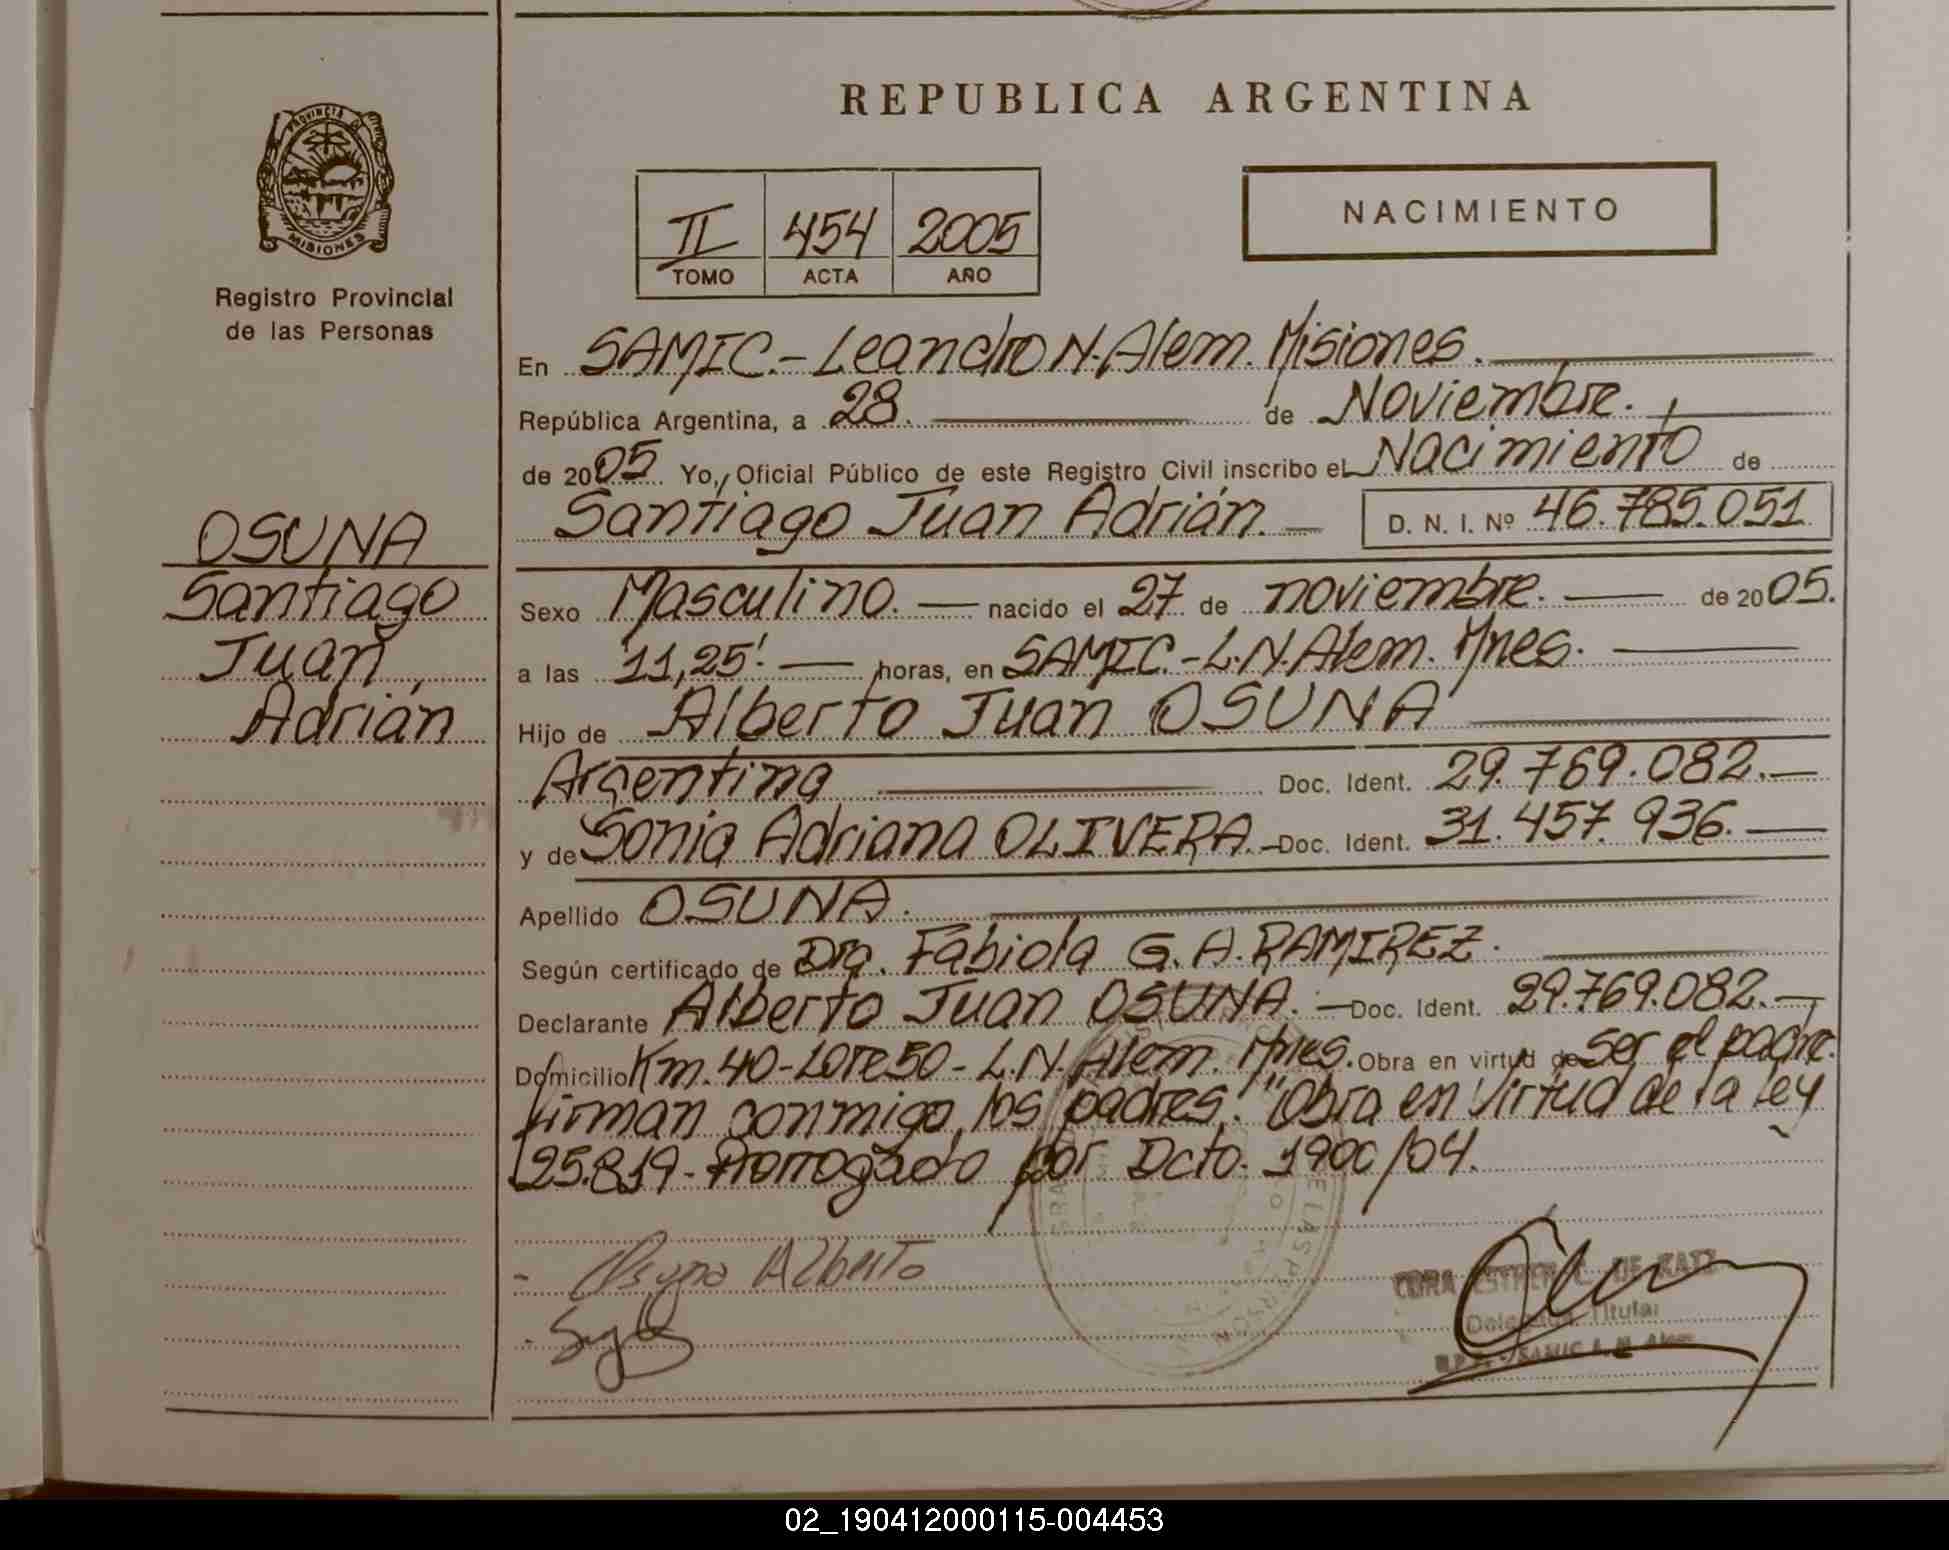 REPUBLICA ARGENTINA
PROVINCIA DE
MISIONES
Registro Provincial
de las Personas
II 454 2005
TOMO ACTA AÑO
NACIMIENTO
En SAMIC.- Leandro N. Alem. Misiones.
República Argentina, a 28. de Noviembre.
de 2005 Yo, Oficial Público de este Registro Civil inscribo el Nacimiento de
Santiago Juan Adrián. D. N. I. Nº 46.785.051
OSUNA
Santiago
Juan
Adrián
Sexo Masculino. nacido el 27 de noviembre. de 2005.
a las 11,25'. horas, en SAMIC.-L.N.Alem. Mnes.
Hijo de Alberto Juan OSUNA
Argentina Doc. Ident. 29.769.082.
y de Sonia Adriana OLIVERA.- Doc. Ident. 31.457.936.
Apellido OSUNA.
Según certificado de Dra. Fabiola G. A. RAMIREZ.
Declarante Alberto Juan OSUNA. Doc. Ident. 29.769.082.-
Domicilio Km.40-Lote 50- L.N. Alem. Mnes. Obra en virtud de Ser el padre.
firman conmigo los padres. "Obra en Virtud de la ley
25.819- Prorrogado por Dcto. 1900/04.
- Osuna Alberto
CORA ESTHER C. DE KATZ
Delegada Titular
SAMIC L. N. Alem
02_190412000115-004453